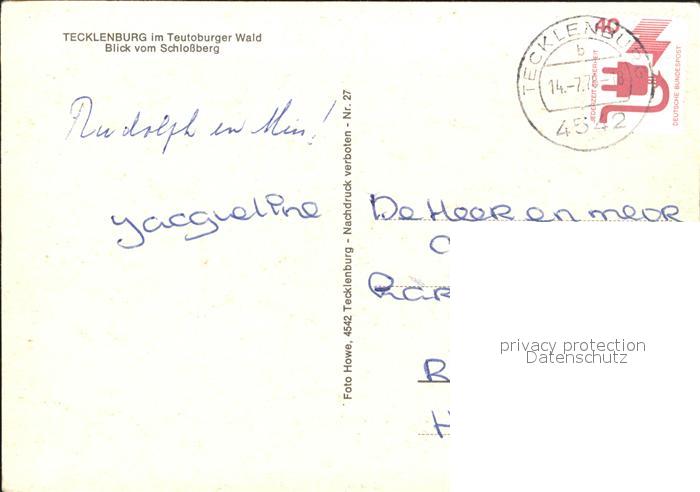 TECKLENBURG im Teutoburger Wald
Blick vom Schloßberg
Rudolph en Min!
Jacqueline
Foto Howe, 4542 Tecklenburg - Nachdruck verboten - Nr. 27
TECKLENBURG
b
14.-7.7
4542
40
JEDERZEIT SICHERHEIT
DEUTSCHE BUNDESPOST
De Heer en mevr
R
H
privacy protection
Datenschutz